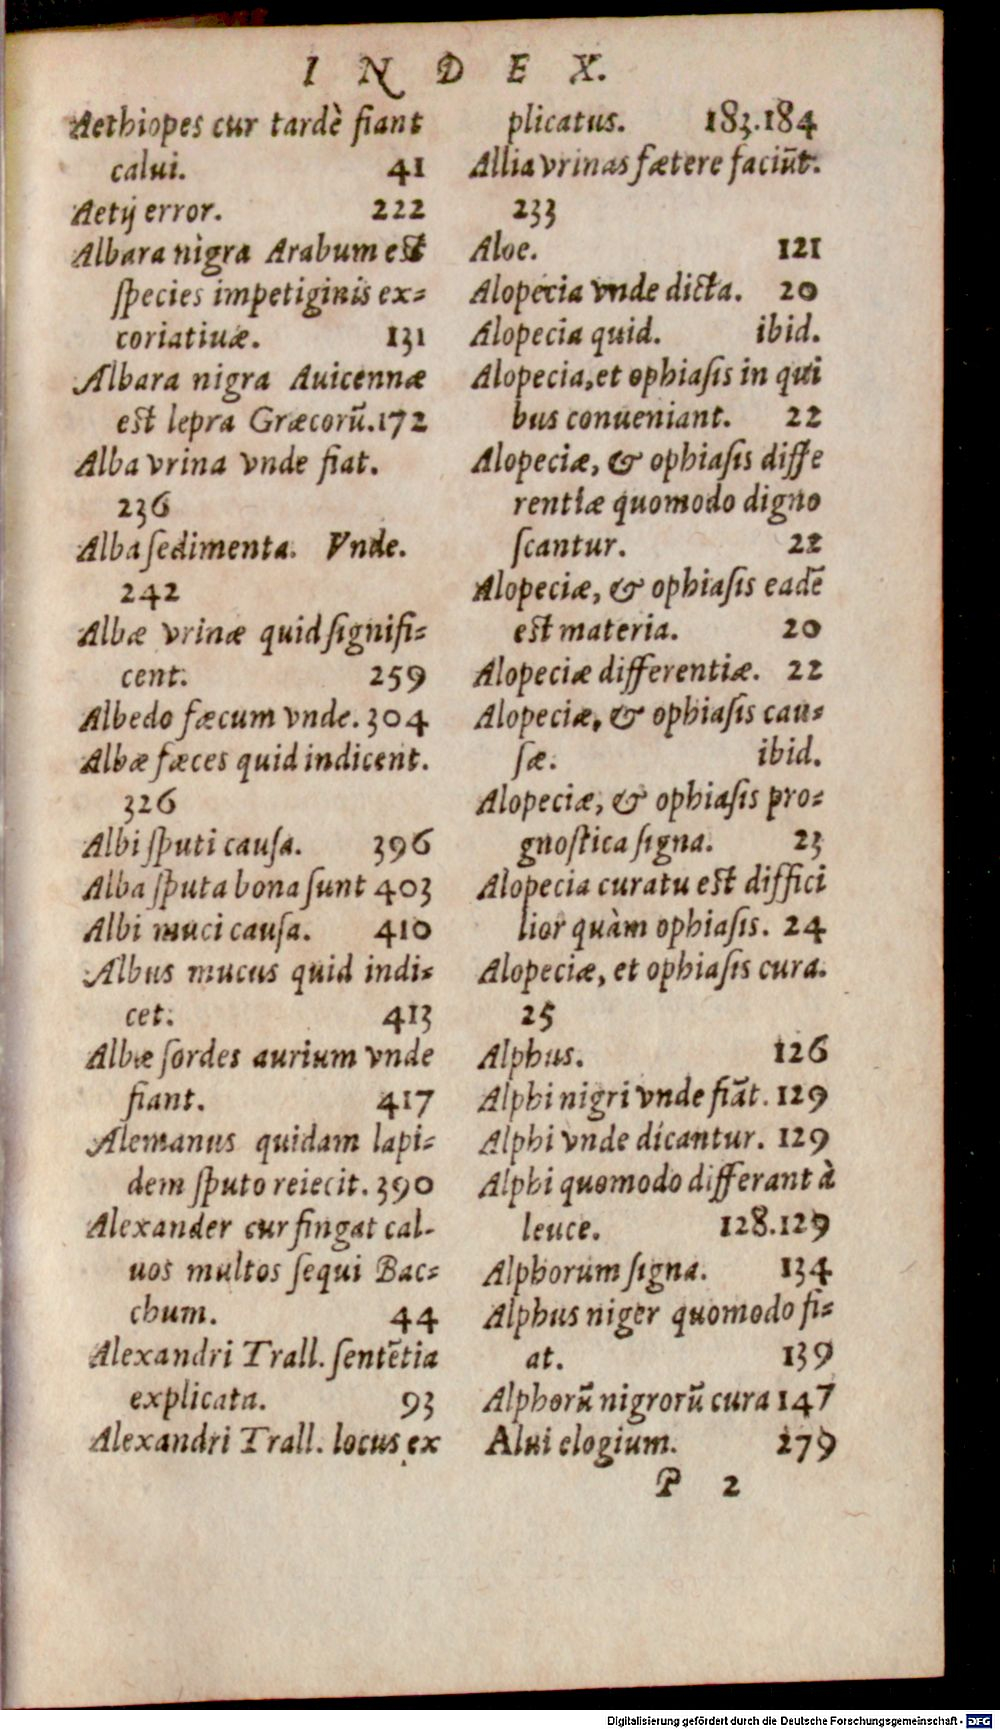 INDEX.
Aethiopes cur tardè fiant
calui. 41
Aetij error. 222
Albara nigra Arabum est
species impetiginis ex=
coriatiuæ. 131
Albara nigra Auicennæ
est lepra Græcorũ. 172
Alba vrina vnde fiat.
236
Alba sedimenta. Vnde.
242
Albæ vrinæ quid signifi=
cent. 259
Albedo fæcum vnde. 304
Albæ fæces quid indicent.
326
Albi sputi causa. 396
Alba sputa bona sunt 403
Albi muci causa. 410
Albus mucus quid indi=
cet. 413
Albæ sordes aurium vnde
fiant. 417
Alemanus quidam lapi=
dem sputo reiecit. 390
Alexander cur fingat cal-
uos multos sequi Bac=
chum. 44
Alexandri Trall. sentẽtia
explicata. 93
Alexandri Trall. locus ex
plicatus. 183.184
Allia vrinas fætere faciũt.
233
Aloe. 121
Alopecia vnde dicta. 20
Alopecia quid. ibid.
Alopecia, et ophiasis in qui
bus conueniant. 22
Alopeciæ, & ophiasis diffe
rentiæ quomodo digno
scantur. 22
Alopeciæ, & ophiasis eadẽ
est materia. 20
Alopeciæ differentiæ. 22
Alopeciæ, & ophiasis cau=
sæ. ibid.
Alopeciæ, & ophiasis pro=
gnostica signa. 23
Alopecia curatu est diffici
lior quàm ophiasis. 24
Alopeciæ, et ophiasis cura.
25
Alphus. 126
Alphi nigri vnde fiãt. 129
Alphi vnde dicantur. 129
Alphi quomodo differant à
leuce. 128.129
Alphorum signa. 134
Alphus niger quomodo fi=
at. 139
Alphorũ nigrorũ cura 147
Alui elogium. 279
P 2
Digitalisierung gefördert durch die Deutsche Forschungsgemeinschaft - DFG